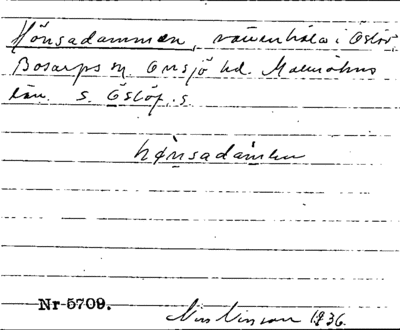 Hönsadammen, vattenhåla i Öslöv,
Bosarps sn. Onsjö hd. Malmöhus
län. S. Öslöf. s.
hønsadamen
Nr 5709.
Nils Nilsson 1936.